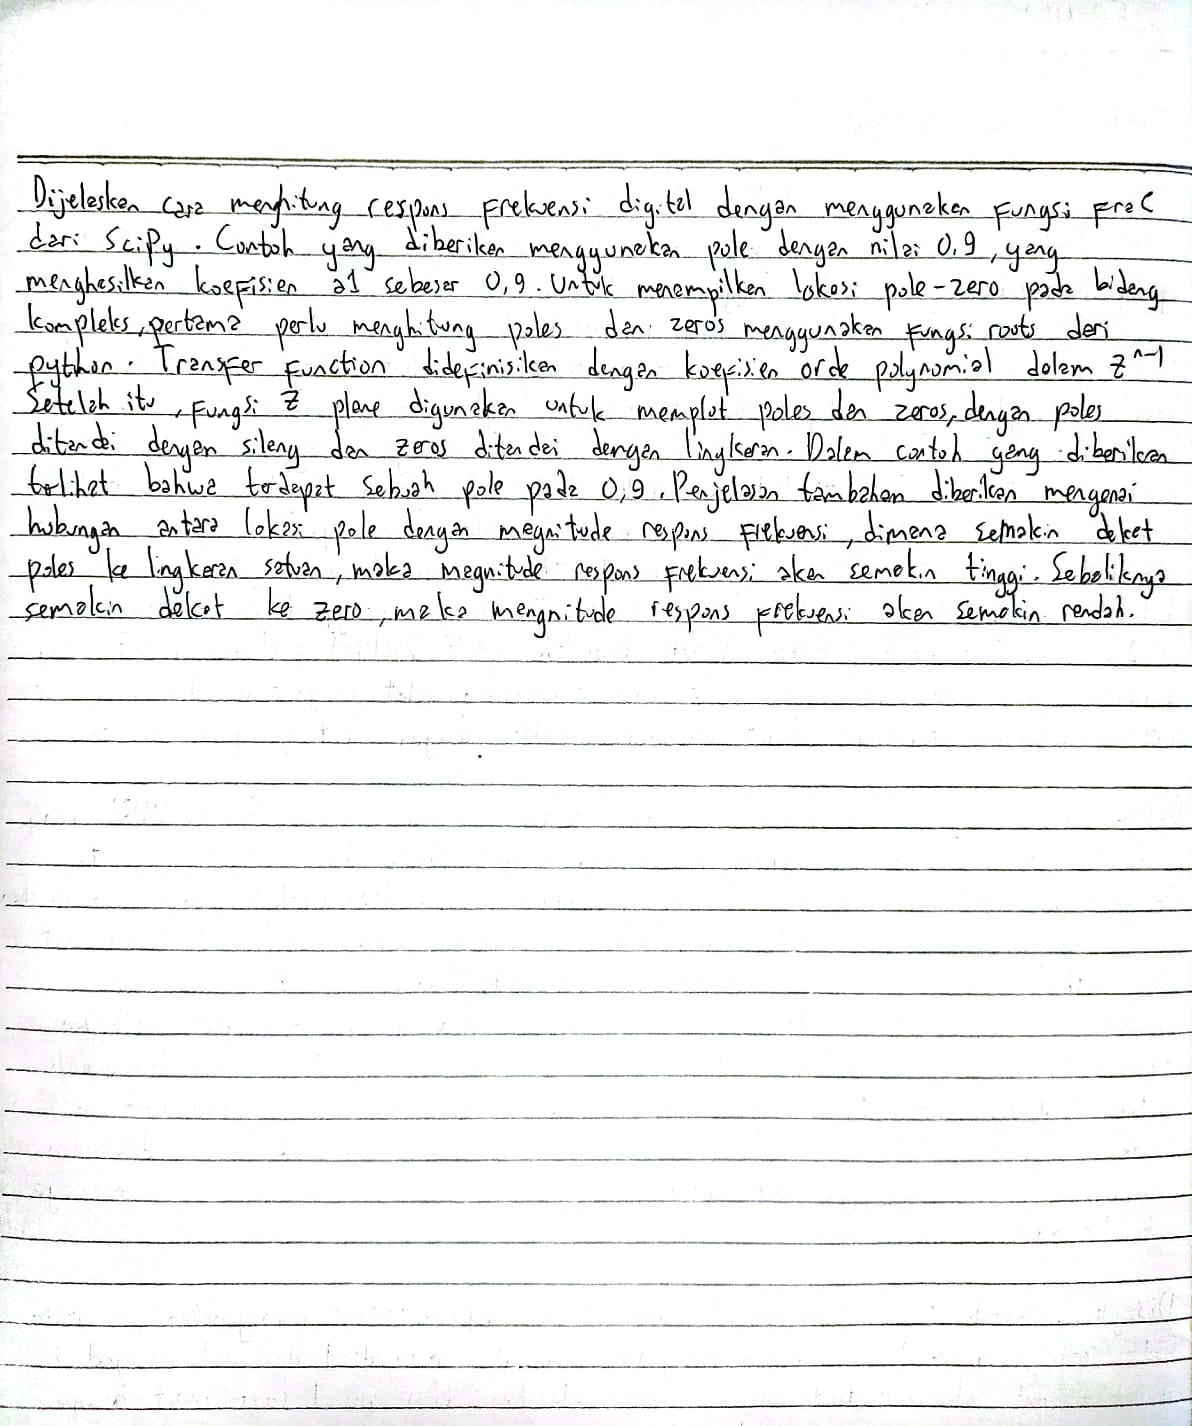 Dijelaskan cara menghitung respons frekuensi digital dengan menggunakan fungsi fraC
dari SciPy. Contoh yang diberikan menggunakan pole dengan nilai 0,9, yang
menghasilkan koefisien a1 sebesar 0,9. Untuk menampilkan lokasi pole-zero pada bidang
kompleks, pertama perlu menghitung poles dan zeros menggunakan fungsi roots dari
python. Transfer function didefinisikan dengan koefisien orde polynomial dalam z^n-1
Setelah itu, fungsi z plane digunakan untuk memplot poles dan zeros, dengan poles
ditandai dengan silang dan zeros ditandai dengan lingkaran. Dalam contoh yang diberikan
terlihat bahwa terdapat sebuah pole pada 0,9. Penjelasan tambahan diberikan mengenai
hubungan antara lokasi pole dengan megnitude respons frekuensi, dimana semakin dekat
poles ke lingkaran satuan, maka megnitude respons frekuensi akan semakin tinggi. Sebaliknya
semakin dekat ke zero, maka mengnitude respons frekuensi akan semakin rendah.